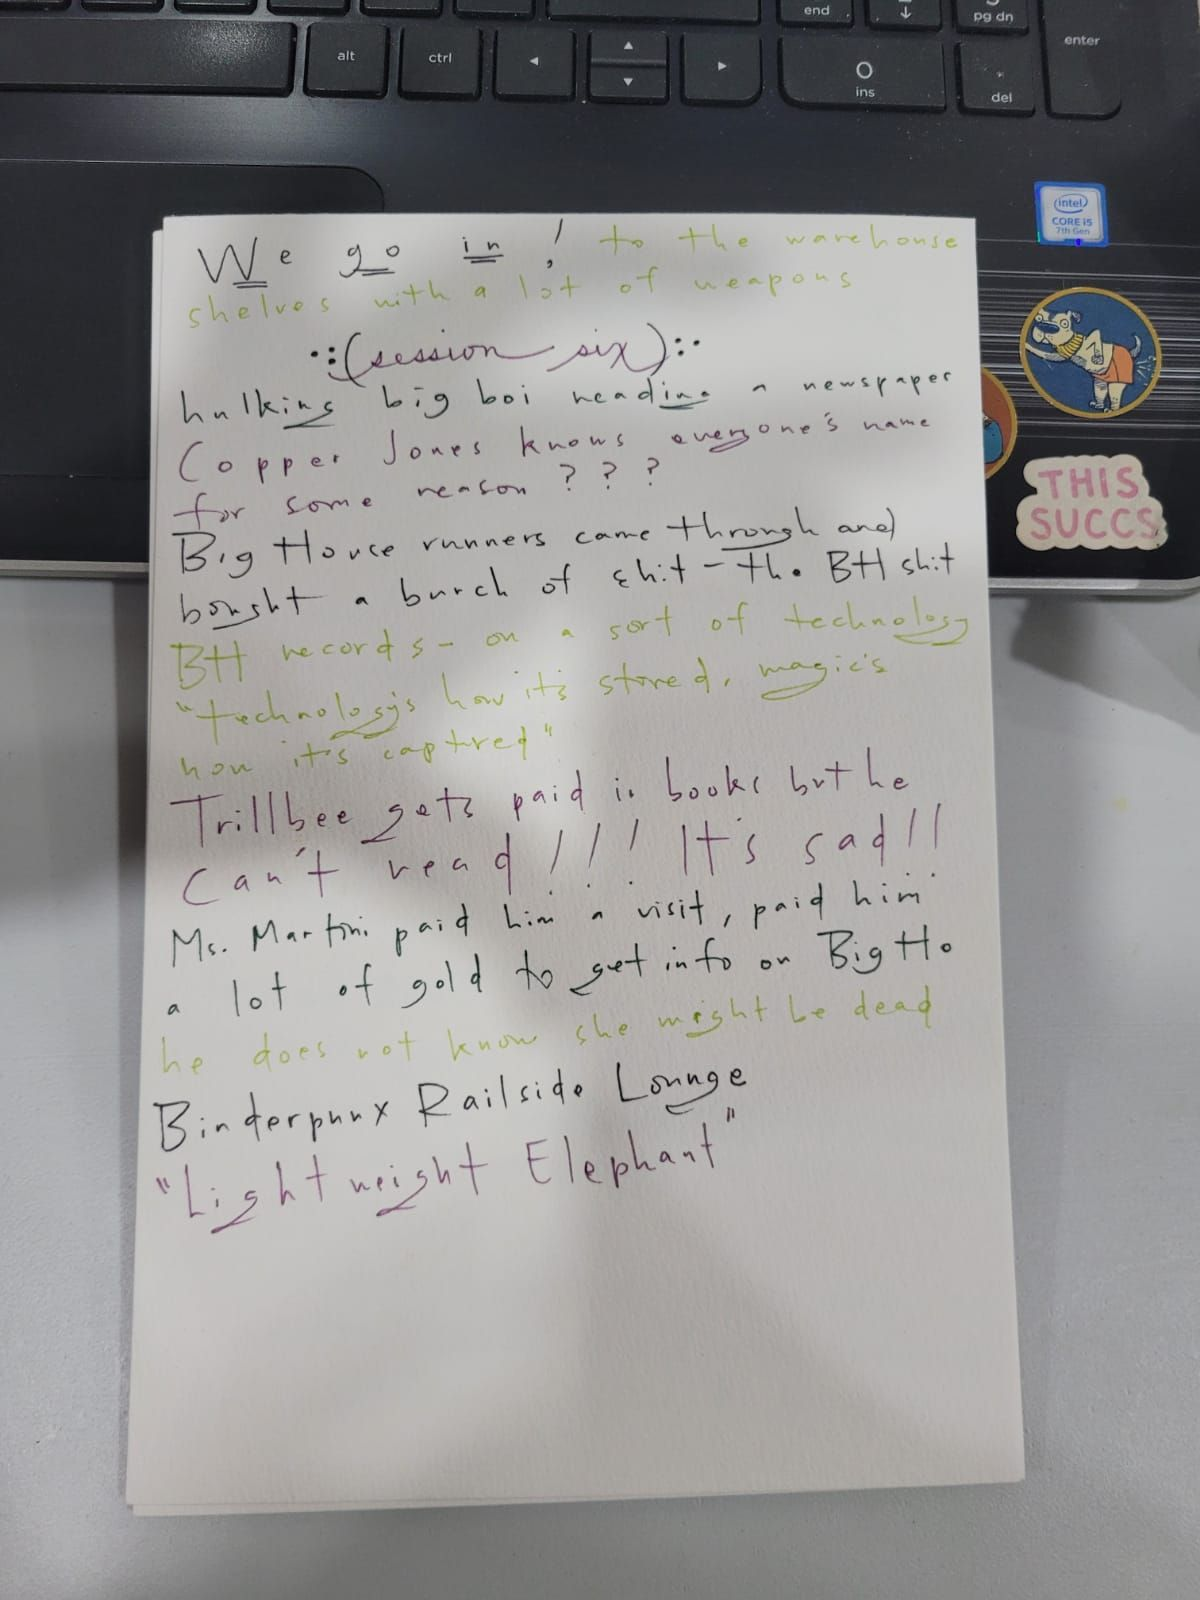 end
pg dn
enter
alt
ctrl
O
ins
.
del
intel
CORE i5
7th Gen
THIS
SUCCS
We go in! to the warehouse
shelves with a lot of weapons
(session six)
hulking big boi reading a newspaper
Copper Jones knows everyone's name
for some reason ? ? ?
Big House runners came through and
bought a bunch of shit - the BH shit
BH records - on a sort of technology
"technology's how it's stored, magic's
how it's captured"
Trillbee gets paid in books but he
can't read!!! It's sad!!
Ms. Martini paid him a visit, paid him
a lot of gold to get info on Big Ho
he does not know she might be dead
Binderpunx Railside Lounge
"Lightweight Elephant"